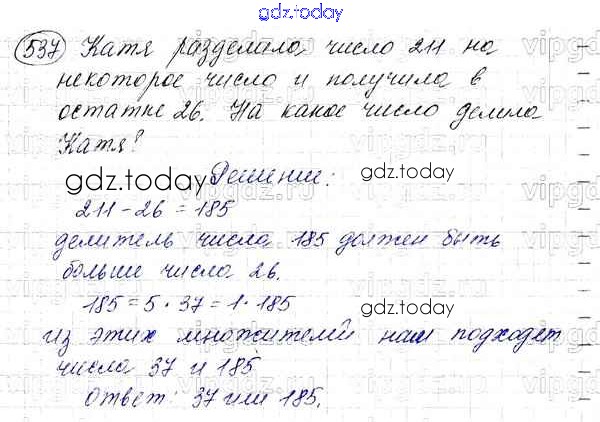 gdz.today
537 Катя разделила число 211 на
некоторое число и получила в
остатке 26. На какое число делила
Катя?
Решение:
gdz.today
gdz.today
211-26=185
делитель числа 185 должен быть
больше числа 26.
185=5·37=1·185
gdz.today
из этих множителей нам подходят
числа 37 и 185
Ответ: 37 или 185.